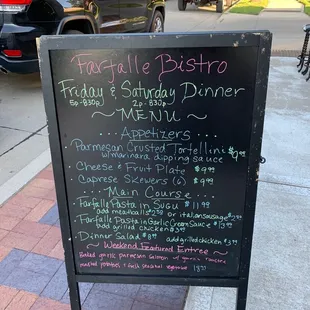 Farfalle Bistro
Friday & Saturday Dinner
5p-830p 2p-830p
~ MENU ~
... Appetizers ...
Parmesan Crusted Tortellini
w/ marinara dipping sauce $9.99
Cheese & Fruit Plate $9.99
Caprese Skewers (6) $9.99
... Main Course ...
Farfalle Pasta in Sugu $11.99
add meatballs or italian sausage
Farfalle Pasta in Garlic Cream Sauce
add grilled chicken
Dinner Salad add grilled chicken
~ Weekend Featured Entree ~
Baked garlic parmesan salmon w/
roasted potatoes & fresh seasonal